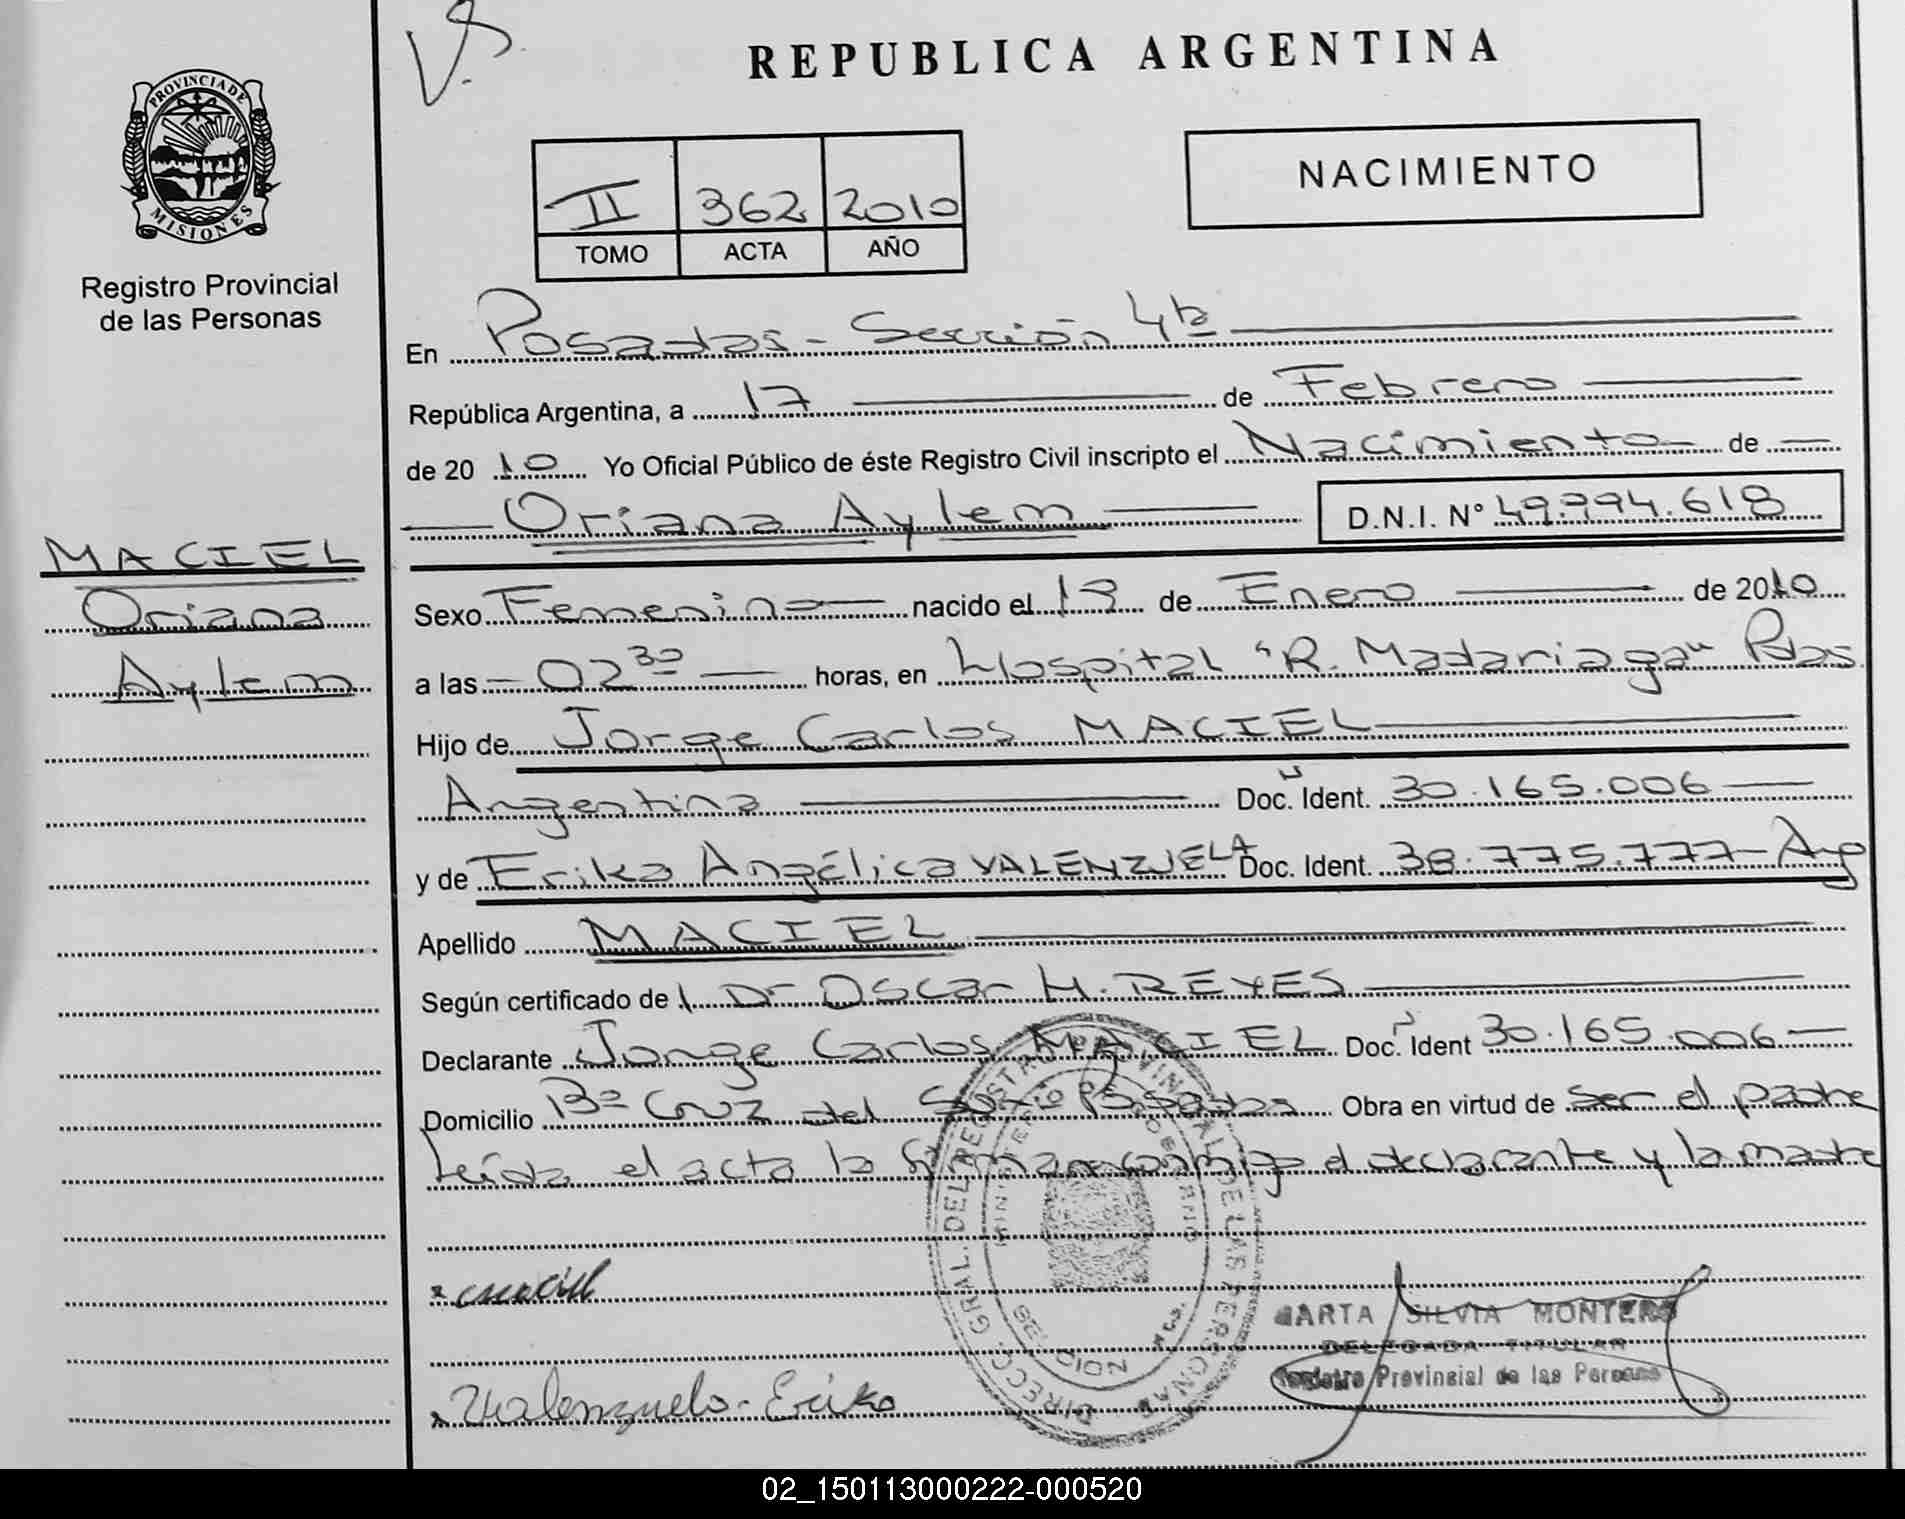 V.S.
REPUBLICA ARGENTINA
PROVINCIA DE
MISIONES
Registro Provincial
de las Personas
II 362 2010
TOMO ACTA AÑO
NACIMIENTO
En Posadas - Sección 4ta
República Argentina, a 17 de Febrero
de 2010 Yo Oficial Público de éste Registro Civil inscripto el Nacimiento de
Oriana Aylem D.N.I. Nº 49.994.618
MACIEL
Oriana
Aylem
Sexo Femenino nacido el 13 de Enero de 2010
a las 02 30 horas, en Hospital "R. Madariaga" Pdas.
Hijo de Jorge Carlos MACIEL
Argentina Doc. Ident. 30.165.006
y de Erika Angélica VALENZUELA Doc. Ident. 38.775.777 - Arg
Apellido MACIEL
Según certificado de l Dr Oscar H. REYES
Declarante Jorge Carlos MACIEL Doc. Ident 30.165.006
Domicilio Bº Cruz del Sur Posadas Obra en virtud de ser el padre
Leída el acta la firman conmigo el declarante y la madre
DIRECC. GRAL. DEL REGISTRO PROVINCIAL DE LAS PERSONAS
x maciel
MARTA SILVIA MONTERO
DELEGADA TITULAR
Registro Provincial de las Personas
x Valenzuela - Erika
02_150113000222-000520